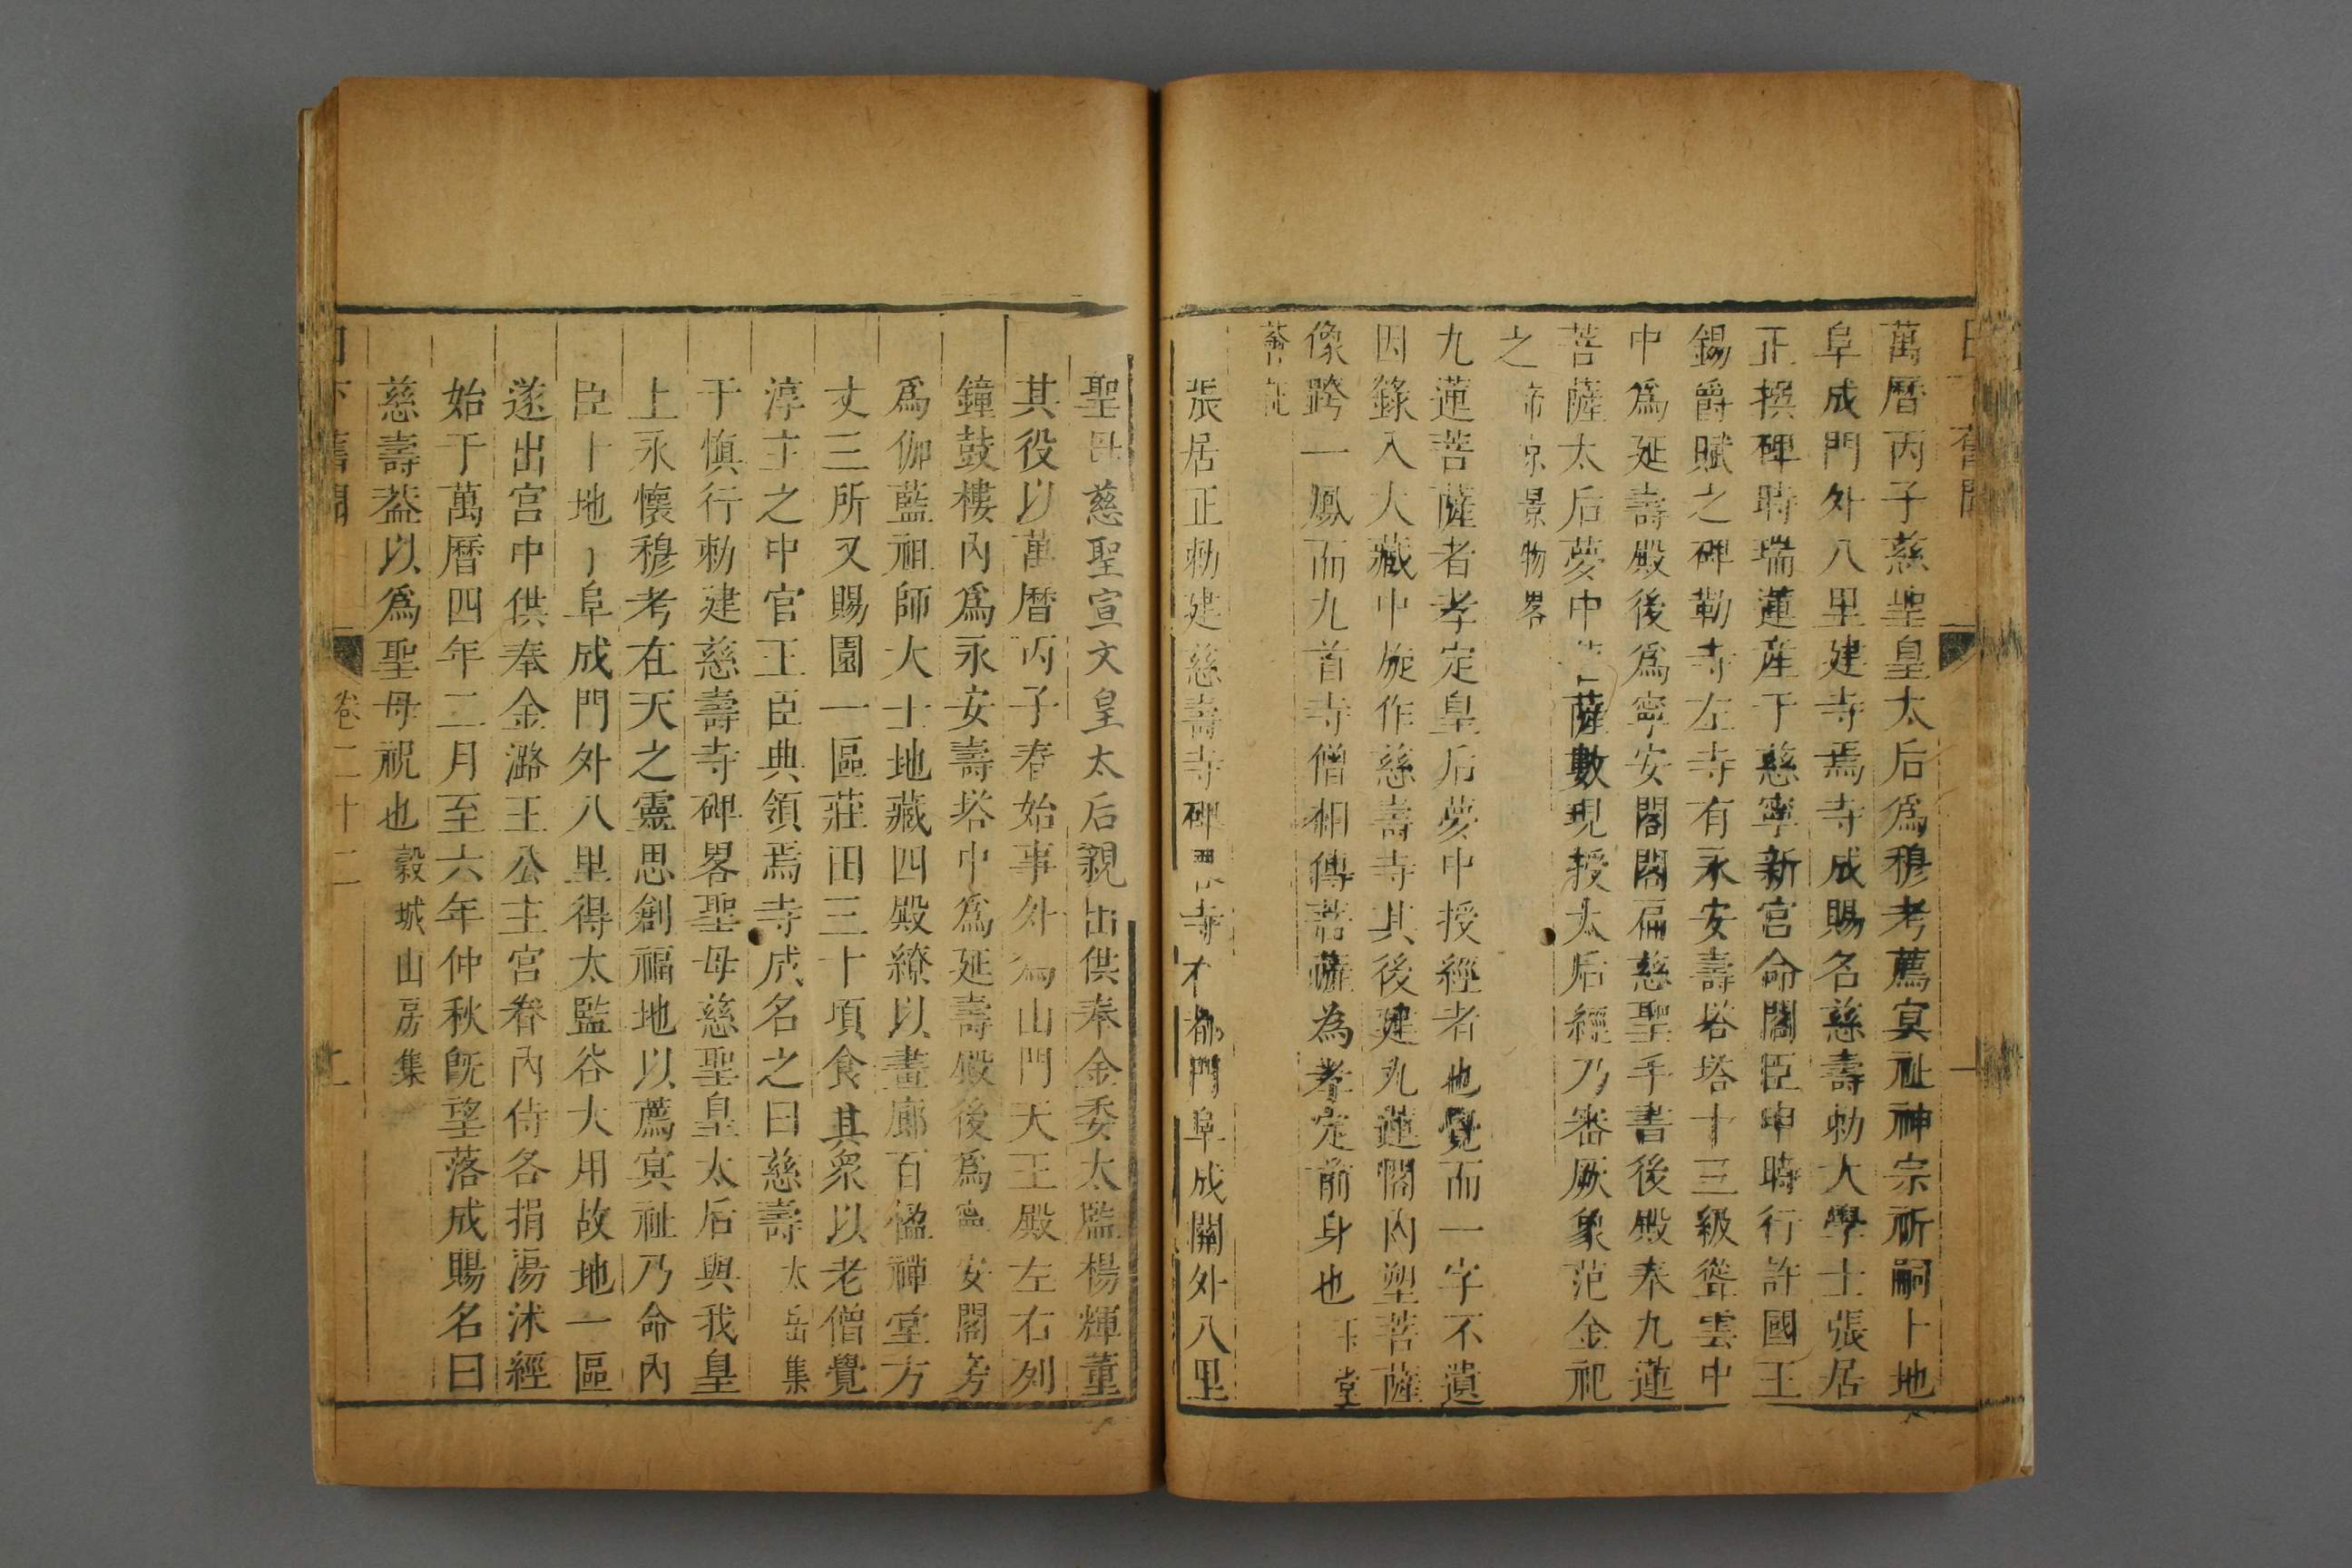 萬曆丙子慈聖皇太后爲穆考薦冥祉神宗祈嗣卜地
阜成門外八里建寺焉寺成賜名慈壽勅大學士張居
正撰碑時瑞蓮産于慈寧新宮命閣臣申時行許國王
錫爵賦之碑勒寺左寺有永安壽塔塔十三級聳雲中
中爲延壽殿後爲寧安閣閣扁慈聖手書後殿奉九蓮
菩薩太后夢中薩數現授太后經乃審厥象范金祀
之 帝京景物畧
九蓮菩薩者孝定皇后夢中授經者也覺而一字不遺
因錄入大藏中旋作慈壽寺其後建九蓮閣內塑菩薩
像跨一鳳而九首寺僧相傳菩薩為孝定前身也 玉堂
薈記
張居正勅建慈壽寺碑寺在都門阜成關外八里
聖母慈聖宣文皇太后親出供奉金委太監楊輝董
其役以萬曆丙子春始事外為山門天王殿左右列
鐘鼓樓內爲永安壽塔中爲延壽殿後爲寧安閣旁
爲伽藍祖師大士地藏四殿繚以畫廊百楹禪堂方
丈三所又賜園一區莊田三十頃食其衆以老僧覺
淳主之中官王臣典領焉寺成名之曰慈壽 太岳集
于慎行勅建慈壽寺碑畧聖母慈聖皇太后與我皇
上永懷穆考在天之靈思創福地以薦冥祉乃命內
臣卜地于阜成門外八里得太監谷大用故地一區
遂出宮中供奉金潞王公主宮眷內侍各捐湯沐經
始于萬曆四年二月至六年仲秋旣望落成賜名曰
慈壽葢以爲聖母祝也 榖城山房集
日下舊聞 卷二十二